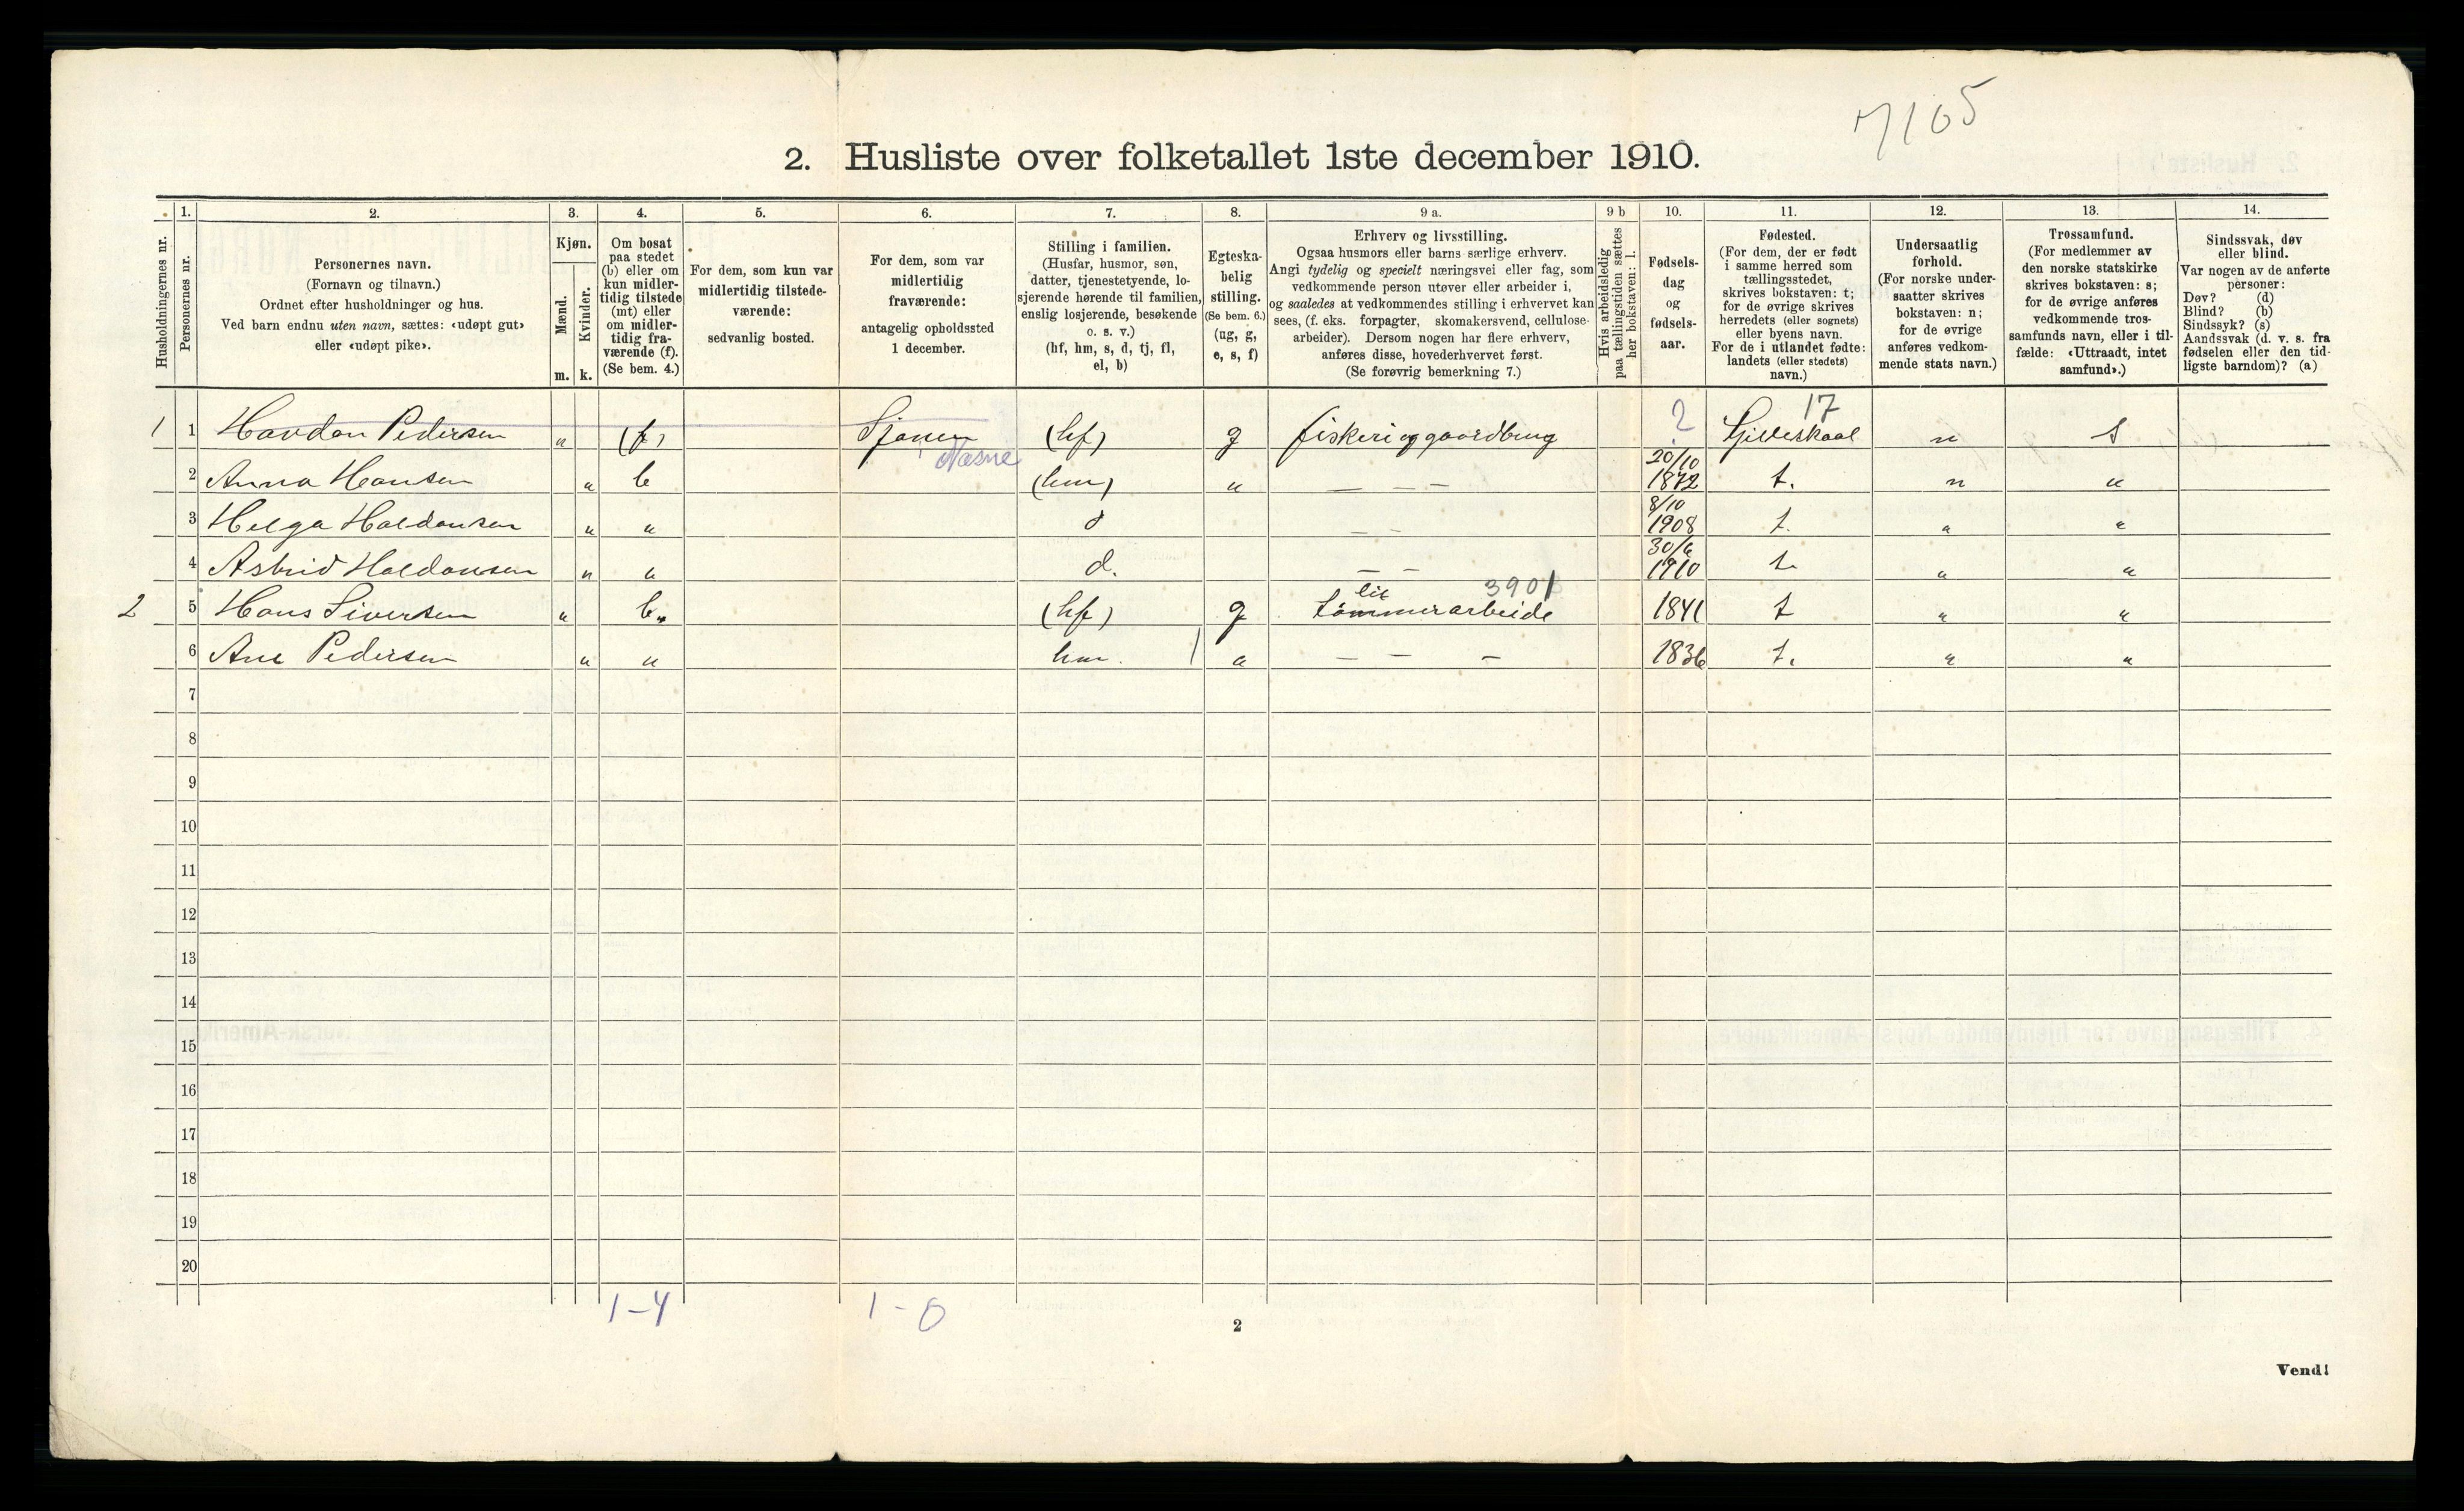 7105
2. Husliste over folketallet 1ste december 1910.
Husholdningernes nr.
1.
Personernes nr.
2.
Personernes navn.
(Fornavn og tilnavn.)
Ordnet efter husholdninger og hus.
Ved barn endnu uten navn, sættes: «udøpt gut»
eller «udøpt pike».
3.
Kjøn.
Mænd.
Kvinder.
m. k.
4.
Om bosat
paa stedet
(b) eller om
kun midler-
tidig tilstede
(mt) eller
om midler-
tidig fra-
værende (f).
(Se bem. 4.)
5.
For dem, som kun var
midlertidig tilstede-
værende:
sedvanlig bosted.
6.
For dem, som var
midlertidig
fraværende:
antagelig opholdssted
1 december.
7.
Stilling i familien.
(Husfar, husmor, søn,
datter, tjenestetyende, lo-
sjerende hørende til familien,
enslig losjerende, besøkende
o. s. v.)
(hf, hm, s, d, tj, fl,
el, b)
8.
Egteska-
belig
stilling.
(Se bem. 6.)
(ug, g,
e, s, f)
9 a.
Erhverv og livsstilling.
Ogsaa husmors eller barns særlige erhverv.
Angi tydelig og specielt næringsvei eller fag, som
vedkommende person utøver eller arbeider i,
og saaledes at vedkommendes stilling i erhvervet kan
sees, (f. eks. forpagter, skomakersvend, cellulose-
arbeider). Dersom nogen har flere erhverv,
anføres disse, hovederhvervet først.
(Se forøvrig bemerkning 7.)
9 b
Hvis arbeidsledig
paa tællingstiden sættes
her bokstaven: l.
10.
Fødsels-
dag
og
fødsels-
aar.
11.
Fødested.
(For dem, der er født
i samme herred som
tællingsstedet,
skrives bokstaven: t;
for de øvrige skrives
herredets (eller sognets)
eller byens navn.
For de i utlandet fødte:
landets (eller stedets)
navn.)
12.
Undersaatlig
forhold.
(For norske under-
saatter skrives
bokstaven: n;
for de øvrige
anføres vedkom-
mende stats navn.)
13.
Trossamfund.
(For medlemmer av
den norske statskirke
skrives bokstaven: s;
for de øvrige anføres
vedkommende tros-
samfunds navn, eller i til-
fælde: «Uttraadt, intet
samfund».)
14.
Sindssvak, døv
eller blind.
Var nogen av de anførte
personer:
Døv? (d)
Blind? (b)
Sindssyk? (s)
Aandssvak (d. v. s. fra
fødselen eller den tid-
ligste barndom)? (a)
1 1 Havdan Pedersen " (f) Sjonen Næsne (hf) g fiskeri og gaardbrug ? Gildeskaal 17 n s
2 Anna Hansen " b (hm) " — — — 20/10 1872 t. n "
3 Helga Haldansen " " d — — 8/10 1908 t. " "
4 Astrid Haldansen " " d. — — 30/6 1910 t. " "
2 5 Hans Siversen " b. (hf) g lit tømmerarbeide 3901 1841 t " "
6 Ane Pedersen " " hm. " — — — 1836 t. " "
7
8
9
10
11
12
13
14
15
16
17
18
19
20
1-4 1-0
2
Vend!